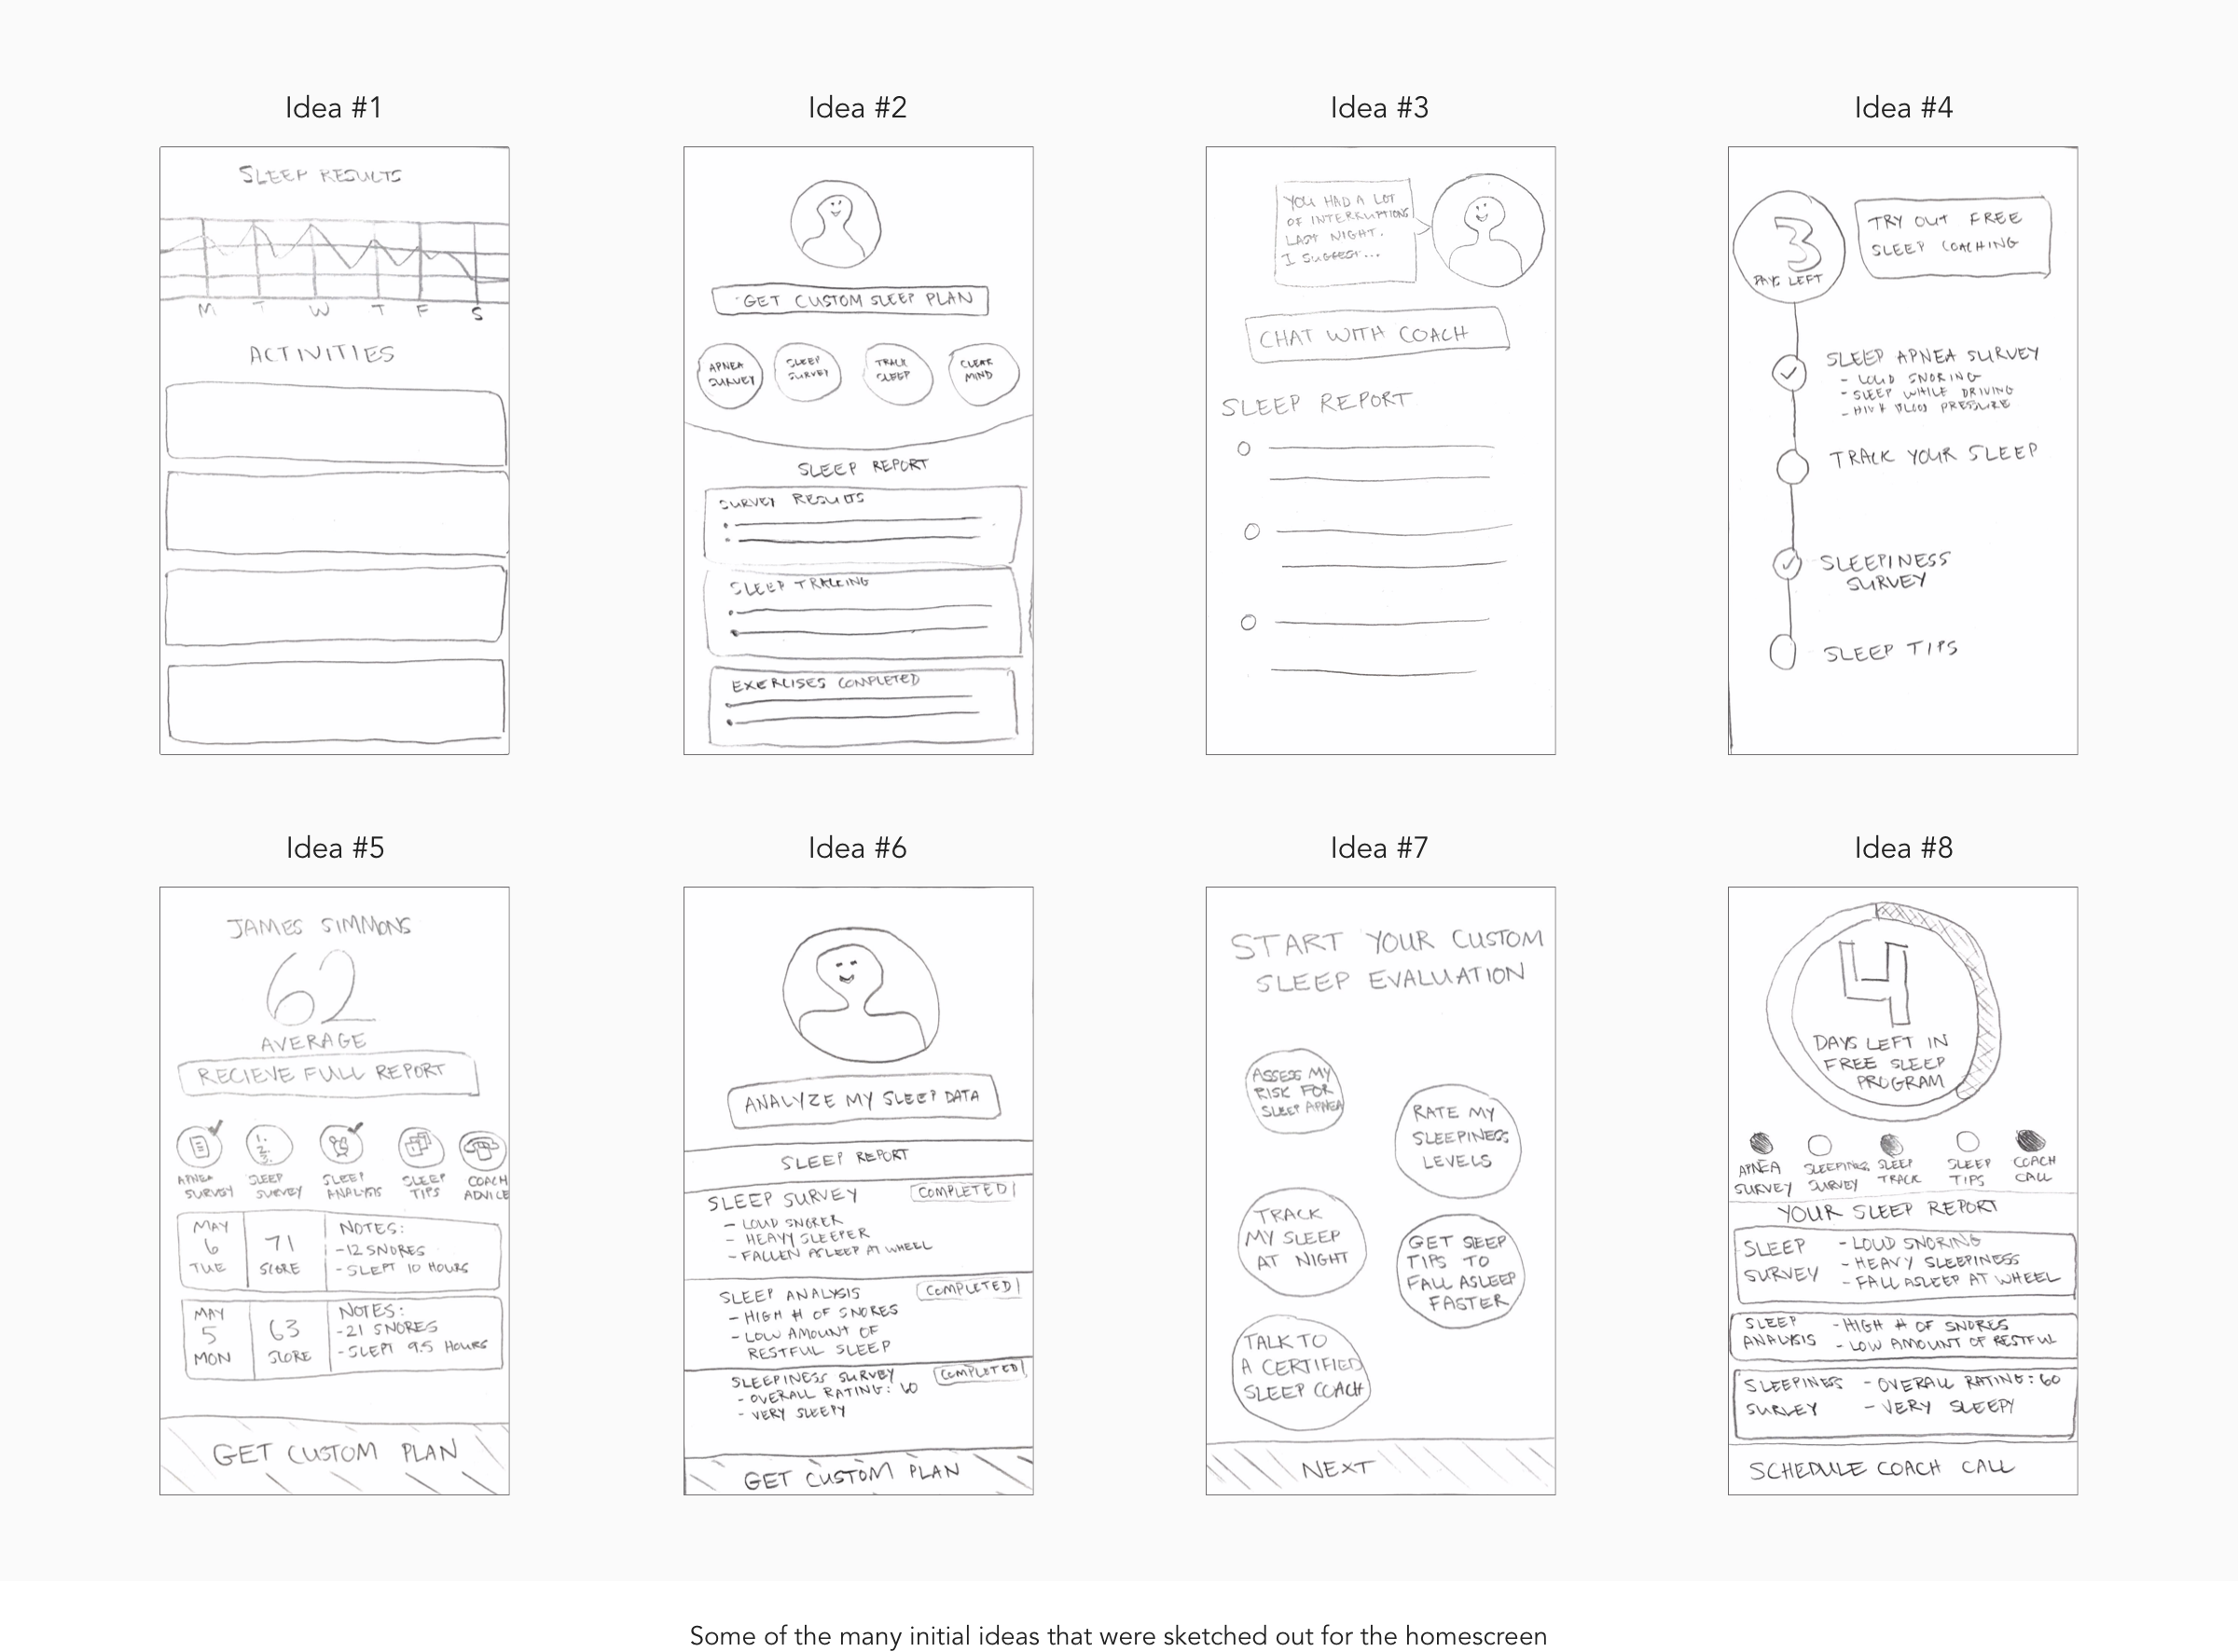 Idea #1
SLEEP RESULTS
M T W T F S
ACTIVITIES
Idea #2
GET CUSTOM SLEEP PLAN
APNEA
SURVEY
SLEEP
SURVEY
TRACK
SLEEP
CLEAR
MIND
SLEEP REPORT
SURVEY RESULTS
SLEEP TRACKING
EXERCISES COMPLETED
Idea #3
YOU HAD A LOT
OF INTERRUPTIONS
LAST NIGHT.
I SUGGEST...
CHAT WITH COACH
SLEEP REPORT
Idea #4
3
DAYS LEFT
TRY OUT FREE
SLEEP COACHING
SLEEP APNEA SURVEY
- LOUD SNORING
- SLEEP WHILE DRIVING
- HIGH BLOOD PRESSURE
TRACK YOUR SLEEP
SLEEPINESS
SURVEY
SLEEP TIPS
Idea #5
JAMES SIMMONS
62
AVERAGE
RECIEVE FULL REPORT
APNEA
SURVEY
SLEEP
SURVEY
SLEEP
ANALYSIS
SLEEP
TIPS
COACH
ADVICE
MAY
6
TUE
71
SCORE
NOTES:
-12 SNORES
- SLEPT 10 HOURS
MAY
5
MON
63
SCORE
NOTES:
-21 SNORES
- SLEPT 9.5 HOURS
GET CUSTOM PLAN
Idea #6
ANALYZE MY SLEEP DATA
SLEEP REPORT
SLEEP SURVEY COMPLETED
- LOUD SNORER
- HEAVY SLEEPER
- FALLEN ASLEEP AT WHEEL
SLEEP ANALYSIS COMPLETED
- HIGH # OF SNORES
- LOW AMOUNT OF
RESTFUL SLEEP
SLEEPINESS SURVEY COMPLETED
- OVERALL RATING: 60
- VERY SLEEPY
GET CUSTOM PLAN
Idea #7
START YOUR CUSTOM
SLEEP EVALUATION
ASSESS MY
RISK FOR
SLEEP APNEA
RATE MY
SLEEPINESS
LEVELS
TRACK
MY SLEEP
AT NIGHT
GET SLEEP
TIPS TO
FALL ASLEEP
FASTER
TALK TO
A CERTIFIED
SLEEP COACH
NEXT
Idea #8
4
DAYS LEFT IN
FREE SLEEP
PROGRAM
APNEA
SURVEY
SLEEPINESS
SURVEY
SLEEP
TRACK
SLEEP
TIPS
COACH
CALL
YOUR SLEEP REPORT
SLEEP
SURVEY
- LOUD SNORING
- HEAVY SLEEPINESS
- FALL ASLEEP AT WHEEL
SLEEP
ANALYSIS
- HIGH # OF SNORES
- LOW AMOUNT OF RESTFUL
SLEEPINESS
SURVEY
- OVERALL RATING: 60
- VERY SLEEPY
SCHEDULE COACH CALL
Some of the many initial ideas that were sketched out for the homescreen